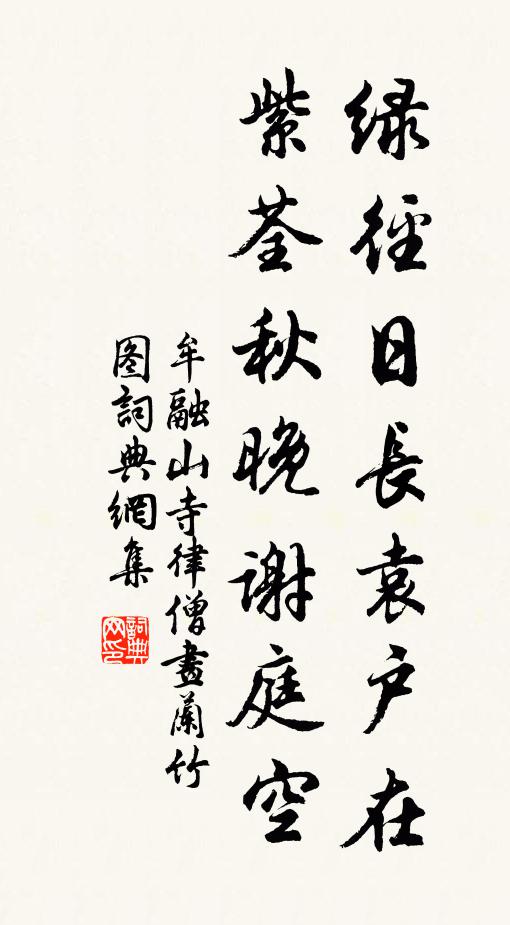 绿徑日長袁户在
紫荃秋晚谢庭空
牟融山寺律僧畫蘭竹
图詞典網集
詞典
网印